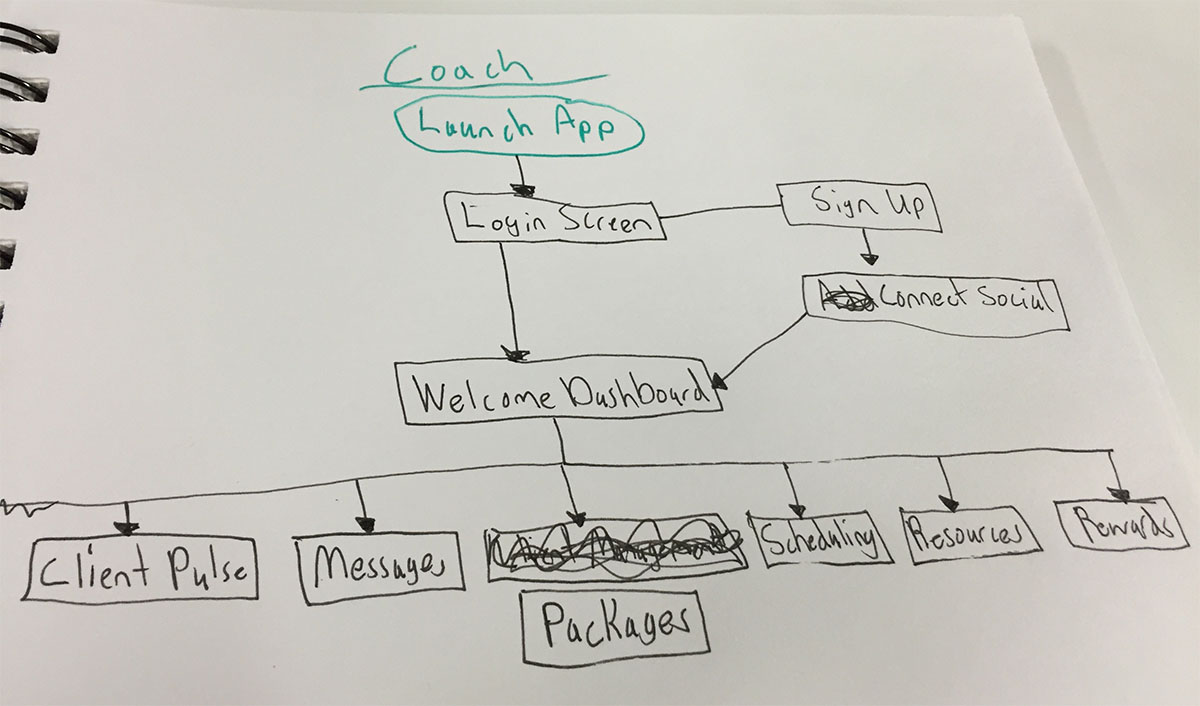 Coach
Launch App
Login Screen
Sign Up
Connect Social
Welcome Dashboard
Client Pulse
Messages
Client Management
Scheduling
Resources
Rewards
Packages